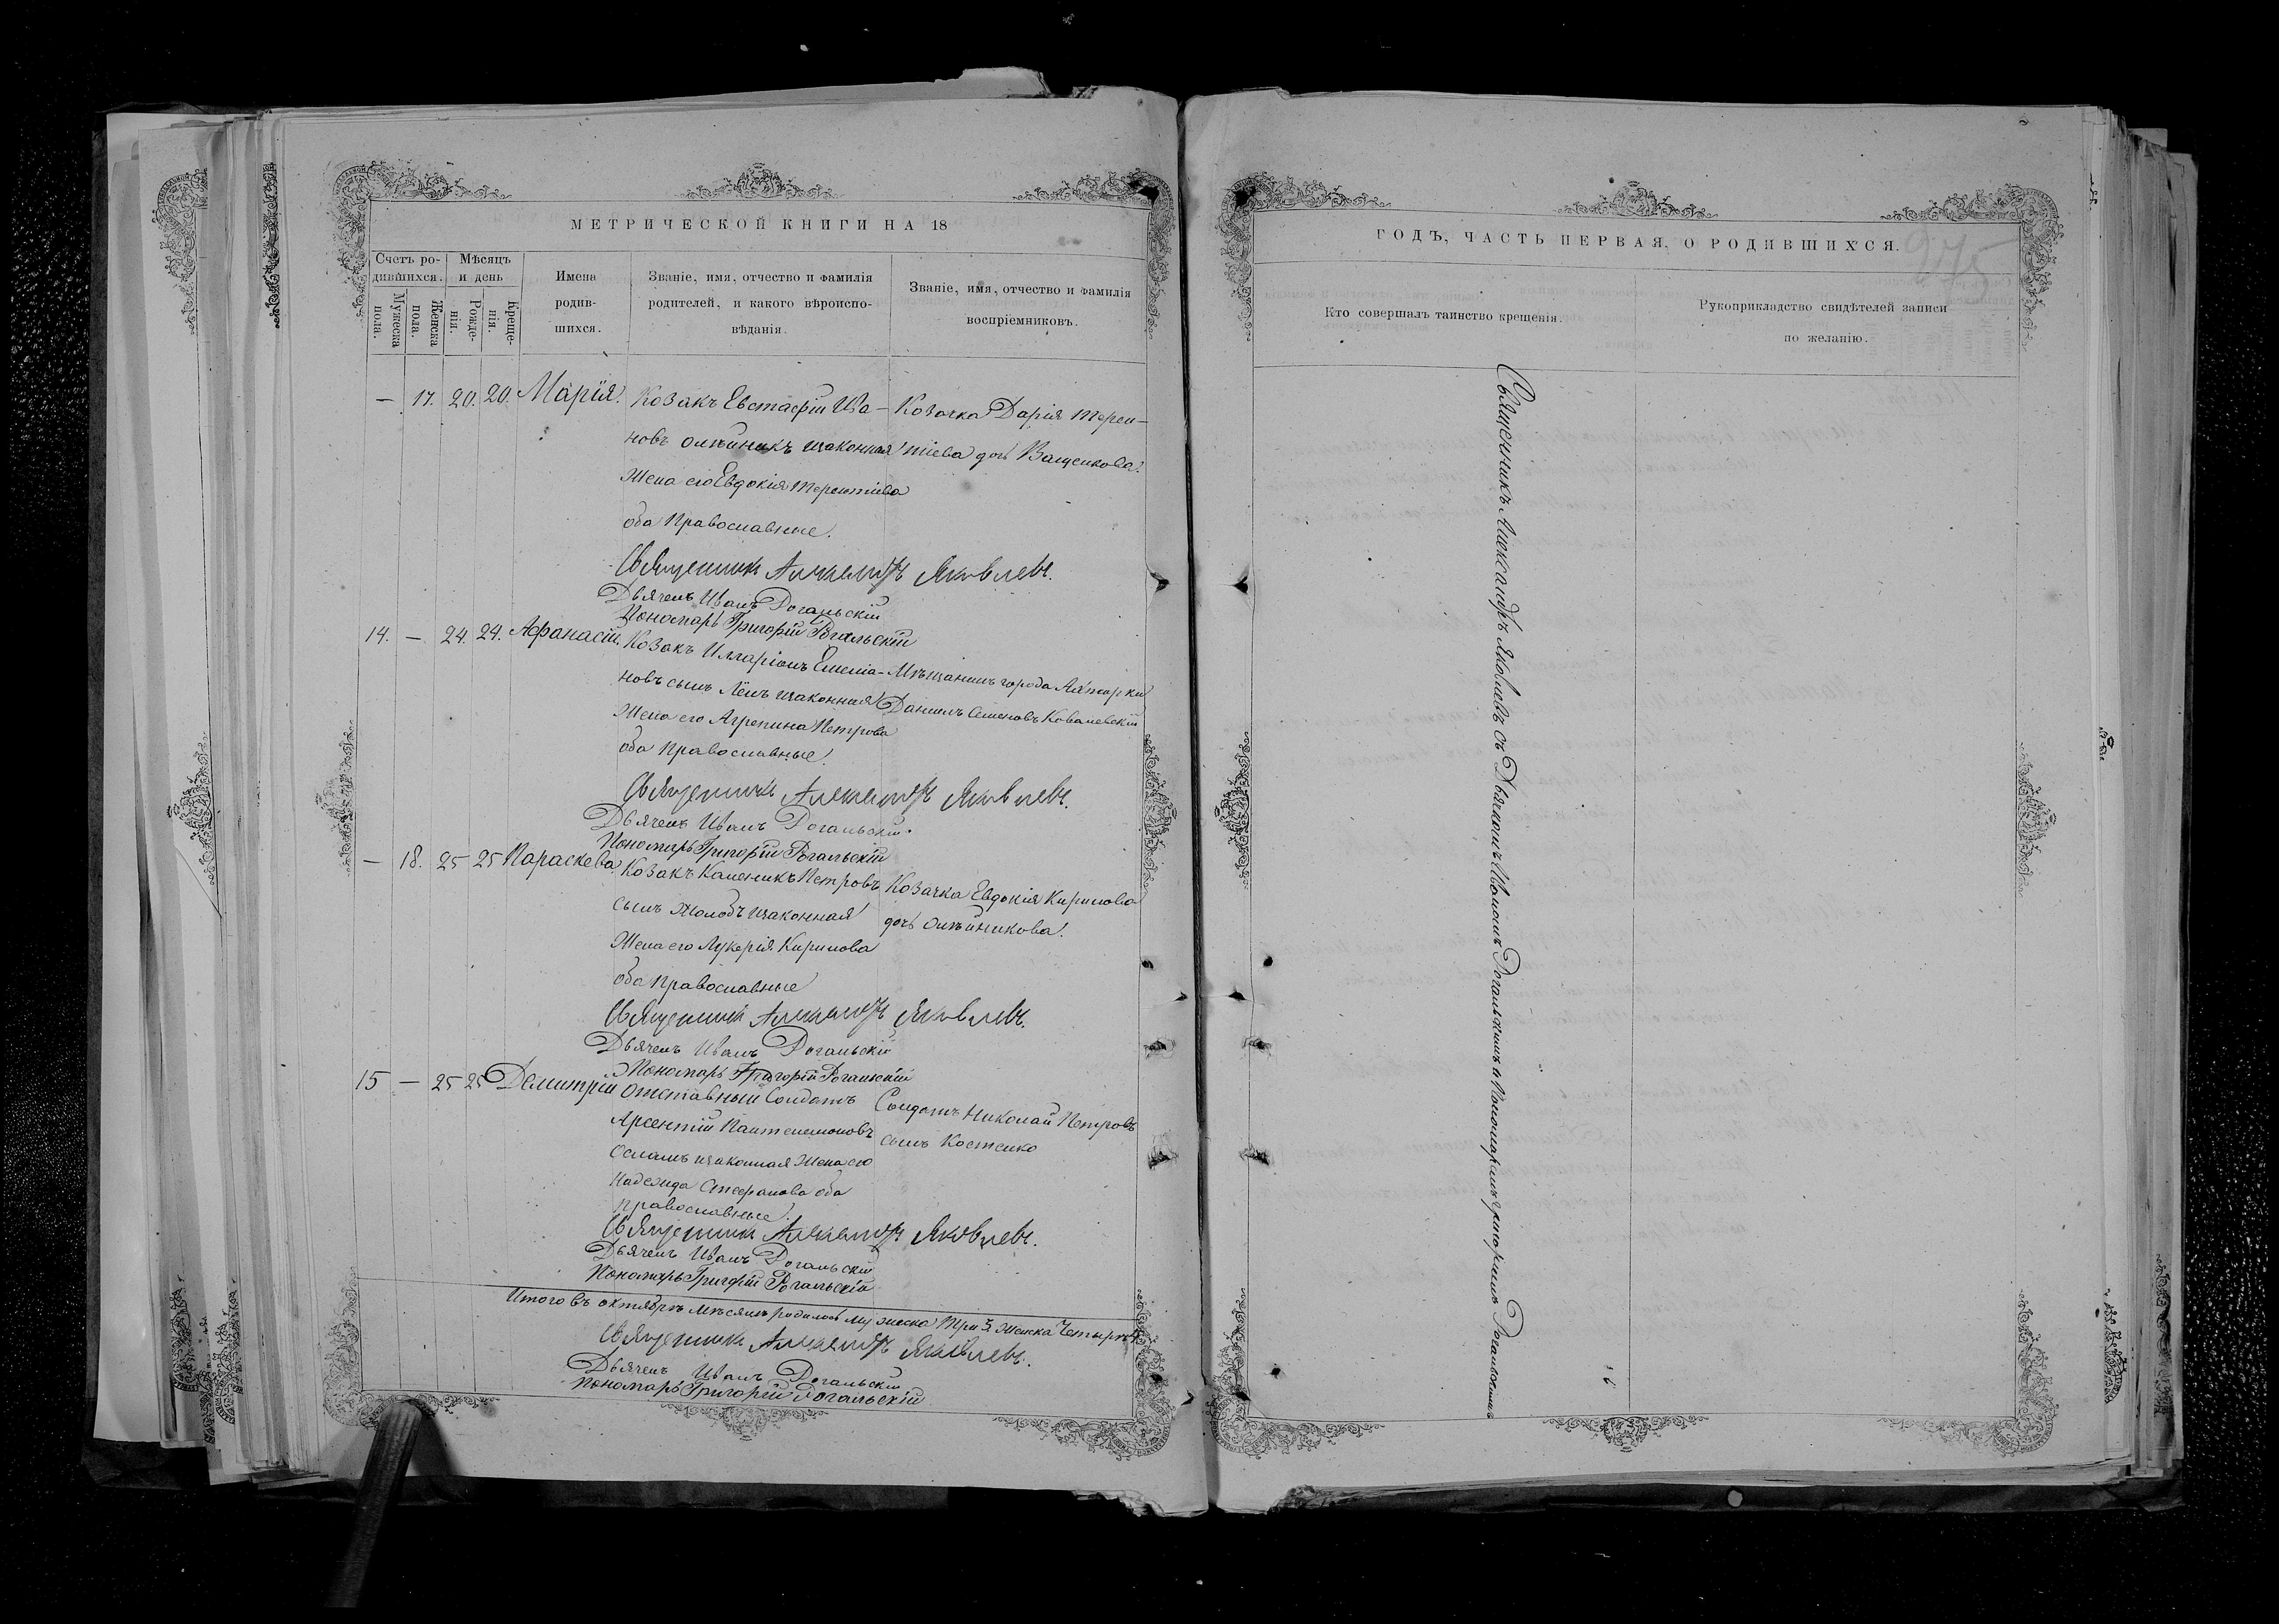 МЕТРИЧЕСКОЙ КНИГИ НА 18
Счетъ ро-
дившихся.
Мужеска
пола.
Женска
пола.
Мѣсяцъ
и день
Рожде-
нія.
Креще-
нія.
Имена
родив-
шихся.
Званіе, имя, отчество и фамилія
родителей, и какого вѣроиспо-
вѣданія.
Званіе, имя, отчество и фамилія
воспріемниковъ.
— 17. 20. 20. Марія. Козакъ Евстафій Ива- Козачка Дарія Терен-
новъ Олѣйникъ изаконная тіева дочь Ващенкова.
Жена его Евдокія Терентіева
оба Православные.
Священникъ Александръ Яковлевъ.
Дьячекъ Иванъ Рогальскій
Пономарь Григорій Рогальскій
14. — 24. 24. Афанасій. Козакъ Илларіонъ Емелiа- Мѣщанинъ города Ахтырки
новъ сынъ изаконная Даніилъ Семеновъ Ковалевскій
Жена его Агрепина Петрова
оба Православные.
Священникъ Александръ Яковлевъ.
Дьячекъ Иванъ Рогальскій.
Пономарь Григорій Рогальскій
— 18. 25 25 Параскева Козакъ Каленикъ Петровъ Козачка Евдокія Кирилова
сынъ изаконная дочь Олѣйникова.
Жена его Лукерія Кирилова
оба Православные
Священникъ Александръ Яковлевъ.
Дьячекъ Иванъ Рогальскій
Пономарь Григорій Рогальскій
15 — 25 25 Демитрій Отставный Солдатъ Солдатъ Николай Петровъ
Арсентій Пантелемоновъ сынъ Костенко
изаконная Жена его
Надежда Стефанова оба
Православные.
Священникъ Александръ Яковлевъ.
Дьячекъ Иванъ Рогальскій
Пономарь Григорій Рогальскій
Итого въ октябрѣ мѣсяцѣ родилось мужеска три 3. женска четыре 4.
Священникъ Александръ Яковлевъ.
Дьячекъ Иванъ Рогальскій
Пономарь Григорій Рогальскій
ГОДЪ, ЧАСТЬ ПЕРВАЯ, О РОДИВШИХСЯ.
275
Кто совершалъ таинство крещенія.
Рукоприкладство свидѣтелей записи
по желанію.
Священникъ Александръ Яковлевъ съ Дьячкомъ Иваномъ Рогальскимъ и Пономаремъ Григоріемъ Рогальскимъ